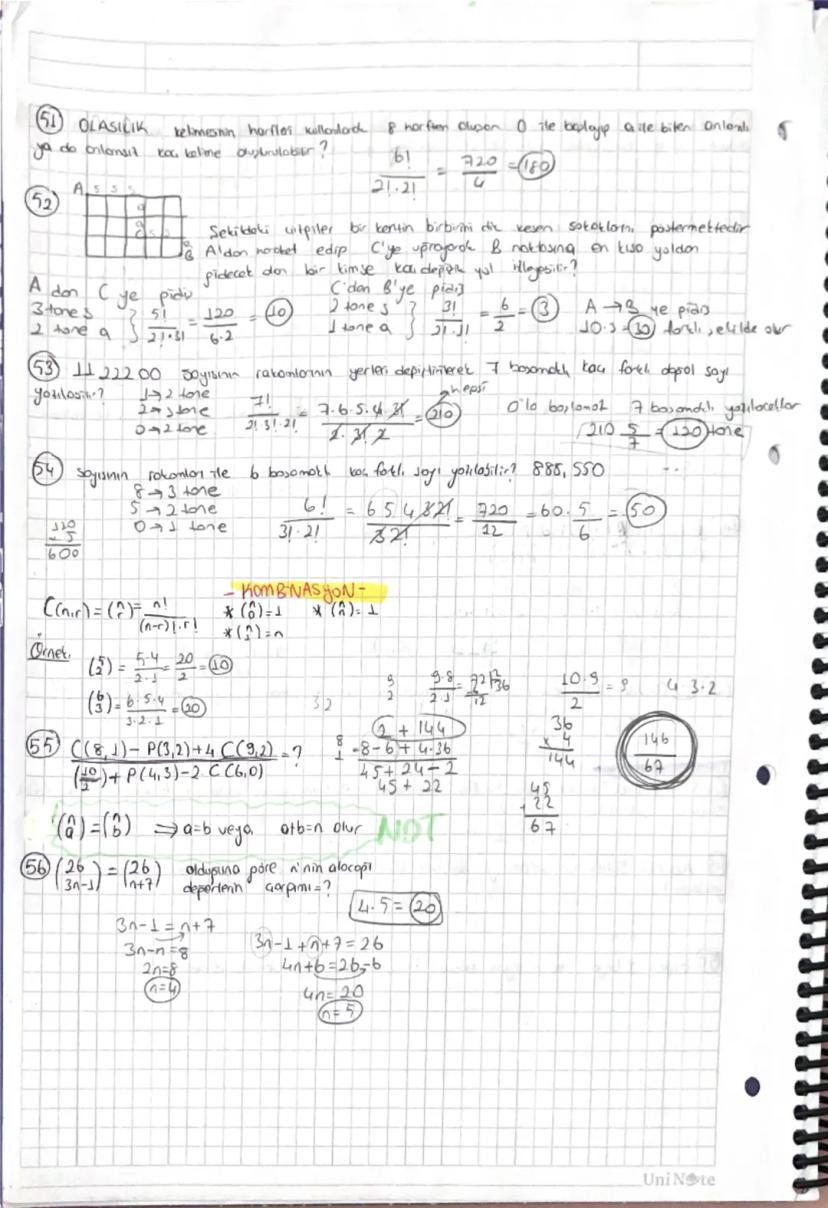 51 OLASILIK kelimesinin harfleri kullanılarak 8 harften oluşan O ile başlayıp a ile biten anlamlı
ya da anlamsız kaç kelime oluşturulabilir?
6! / 2!.2! = 720 / 4 = 180
52
A s s s
a
a s s
a
B
Şekildeki çizgiler bir kentin birbirini dik kesen sokaklarını göstermektedir
A'dan hareket edip C'ye uğrayarak B noktasına en kısa yoldan
gidecek olan bir kimse kaç değişik yol izleyebilir?
A dan C ye gidiş
3 tane s
2 tane a } 5! / 2!.3! = 120 / 6.2 = 10
C'dan B'ye gidiş
2 tane s
1 tane a } 3! / 2!.1! = 6 / 2 = 3
A → B ye gidiş
10.3 = 30 farklı şekilde olur
53 1122200 sayısının rakamlarının yerleri değiştirilerek 7 basamaklı kaç farklı doğal sayı
yazılabilir?
1→2 tane
2→3 tane
0→2 tane
7! / 2!.3!.2! = 7.6.5.4.3! / 2.3!.2 = 210 hepsi
0'la başlamaz 7 basamaklı yazılacaklar
210 5/7 = 120 tane
54 sayısının rakamları ile 6 basamaklı kaç farklı sayı yazılabilir? 888,550
8→3 tane
5→2 tane
0→1 tane
6! / 3!.2! = 6 5 4 321 / 321 = 720 / 12 = 60. 5/6 = 50
120
x 5
600
- KOMBİNASYON -
C(n,r) = (n r) = n! / (n-r)!.r!
* (n 0) = 1 * (n n) = 1
* (n 1) = n
Örnek.
(5 2) = 5.4 / 2.1 = 20 / 2 = 10
(6 3) = 6.5.4 / 3.2.1 = 20
32
9
2
9.8 / 2.1 = 72
36
10.9 / 2 = 9
4 3.2
55 C(8,1) - P(3,2) + 4 C(9,2) / (10 2) + P(4,3) - 2 C(6,0) = ?
2 + 144
8
1
= 8 - 6 + 4.36
45 + 24 - 2
45 + 22
36
x 4
144
45
+ 22
67
146 / 67
(n a) = (n b) ⇒ a=b veya a+b=n olur NOT
56 (26 3n-1) = (26 n+7) olduğuna göre n'nin alacağı
değerlerin çarpımı = ?
4.5 = 20
3n-1 = n+7
3n-n = 8
2n = 8
n = 4
3n-1 + n+7 = 26
4n+6 = 26-6
4n = 20
n = 5
UniNote